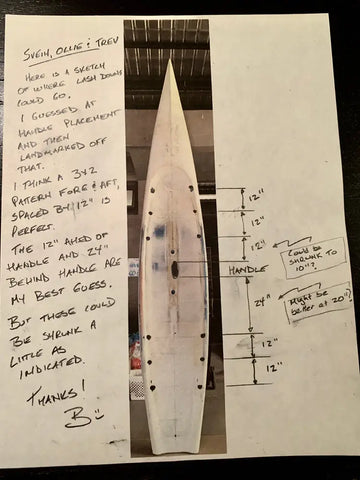 SVEIN, OLLIE & TREV
HERE IS A SKETCH
OF WHERE LASH DOWNS
COULD GO.
I GUESSED AT
HANDLE PLACEMENT
AND THEN
LANDMARKED OFF
THAT.
I THINK A 3x2
PATTERN FORE & AFT,
SPACED BY 12" IS
PERFECT.
THE 12" AHEAD OF
HANDLE AND 24"
BEHIND HANDLE ARE
MY BEST GUESS.
BUT THESE COULD
BE SHRUNK A
LITTLE AS
INDICATED.
THANKS!
B
12"
12"
12"
Could be
SHRUNK TO
10"?
HANDLE
24"
Might be
better at 20"?
12"
12"